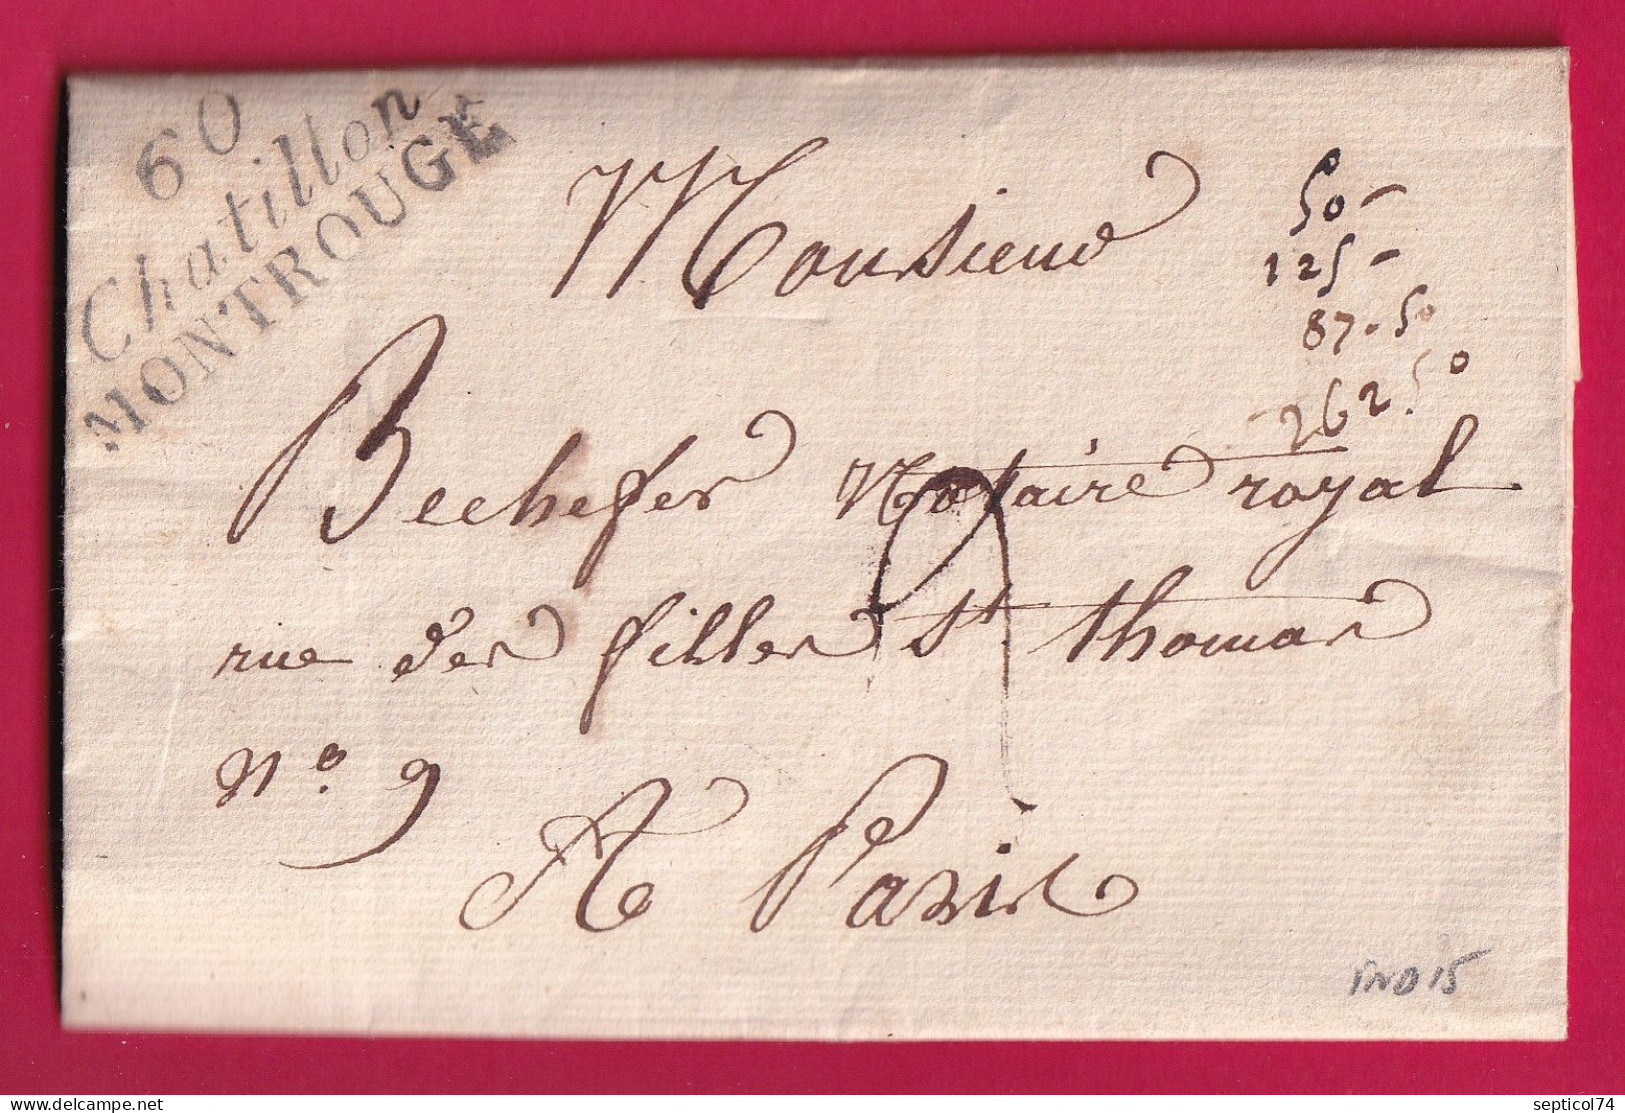 60
Chatillon
MONTROUGE
Monsieur
50 -
125 -
87.50
262.50
Bechefer Notaire royal
rue des filles St thomas
N° 9
A Paris
IND 15
delcampe.net
septicol74